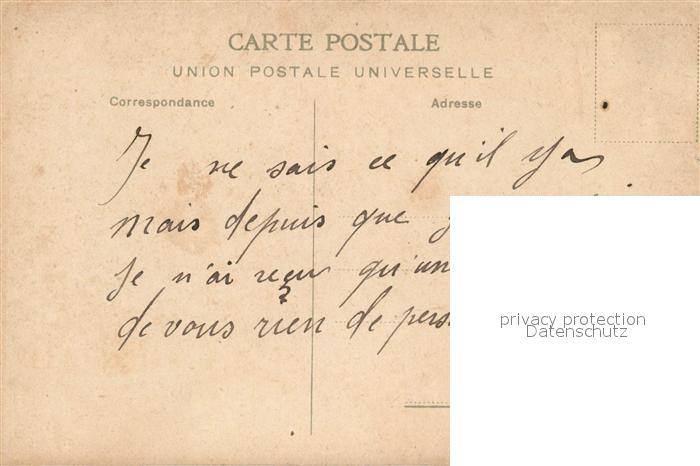 CARTE POSTALE
UNION POSTALE UNIVERSELLE
Correspondance Adresse
Je ne sais ce qu'il y a
mais depuis que
Je n'ai reçu qu'un
de vous rien de pers
privacy protection
Datenschutz